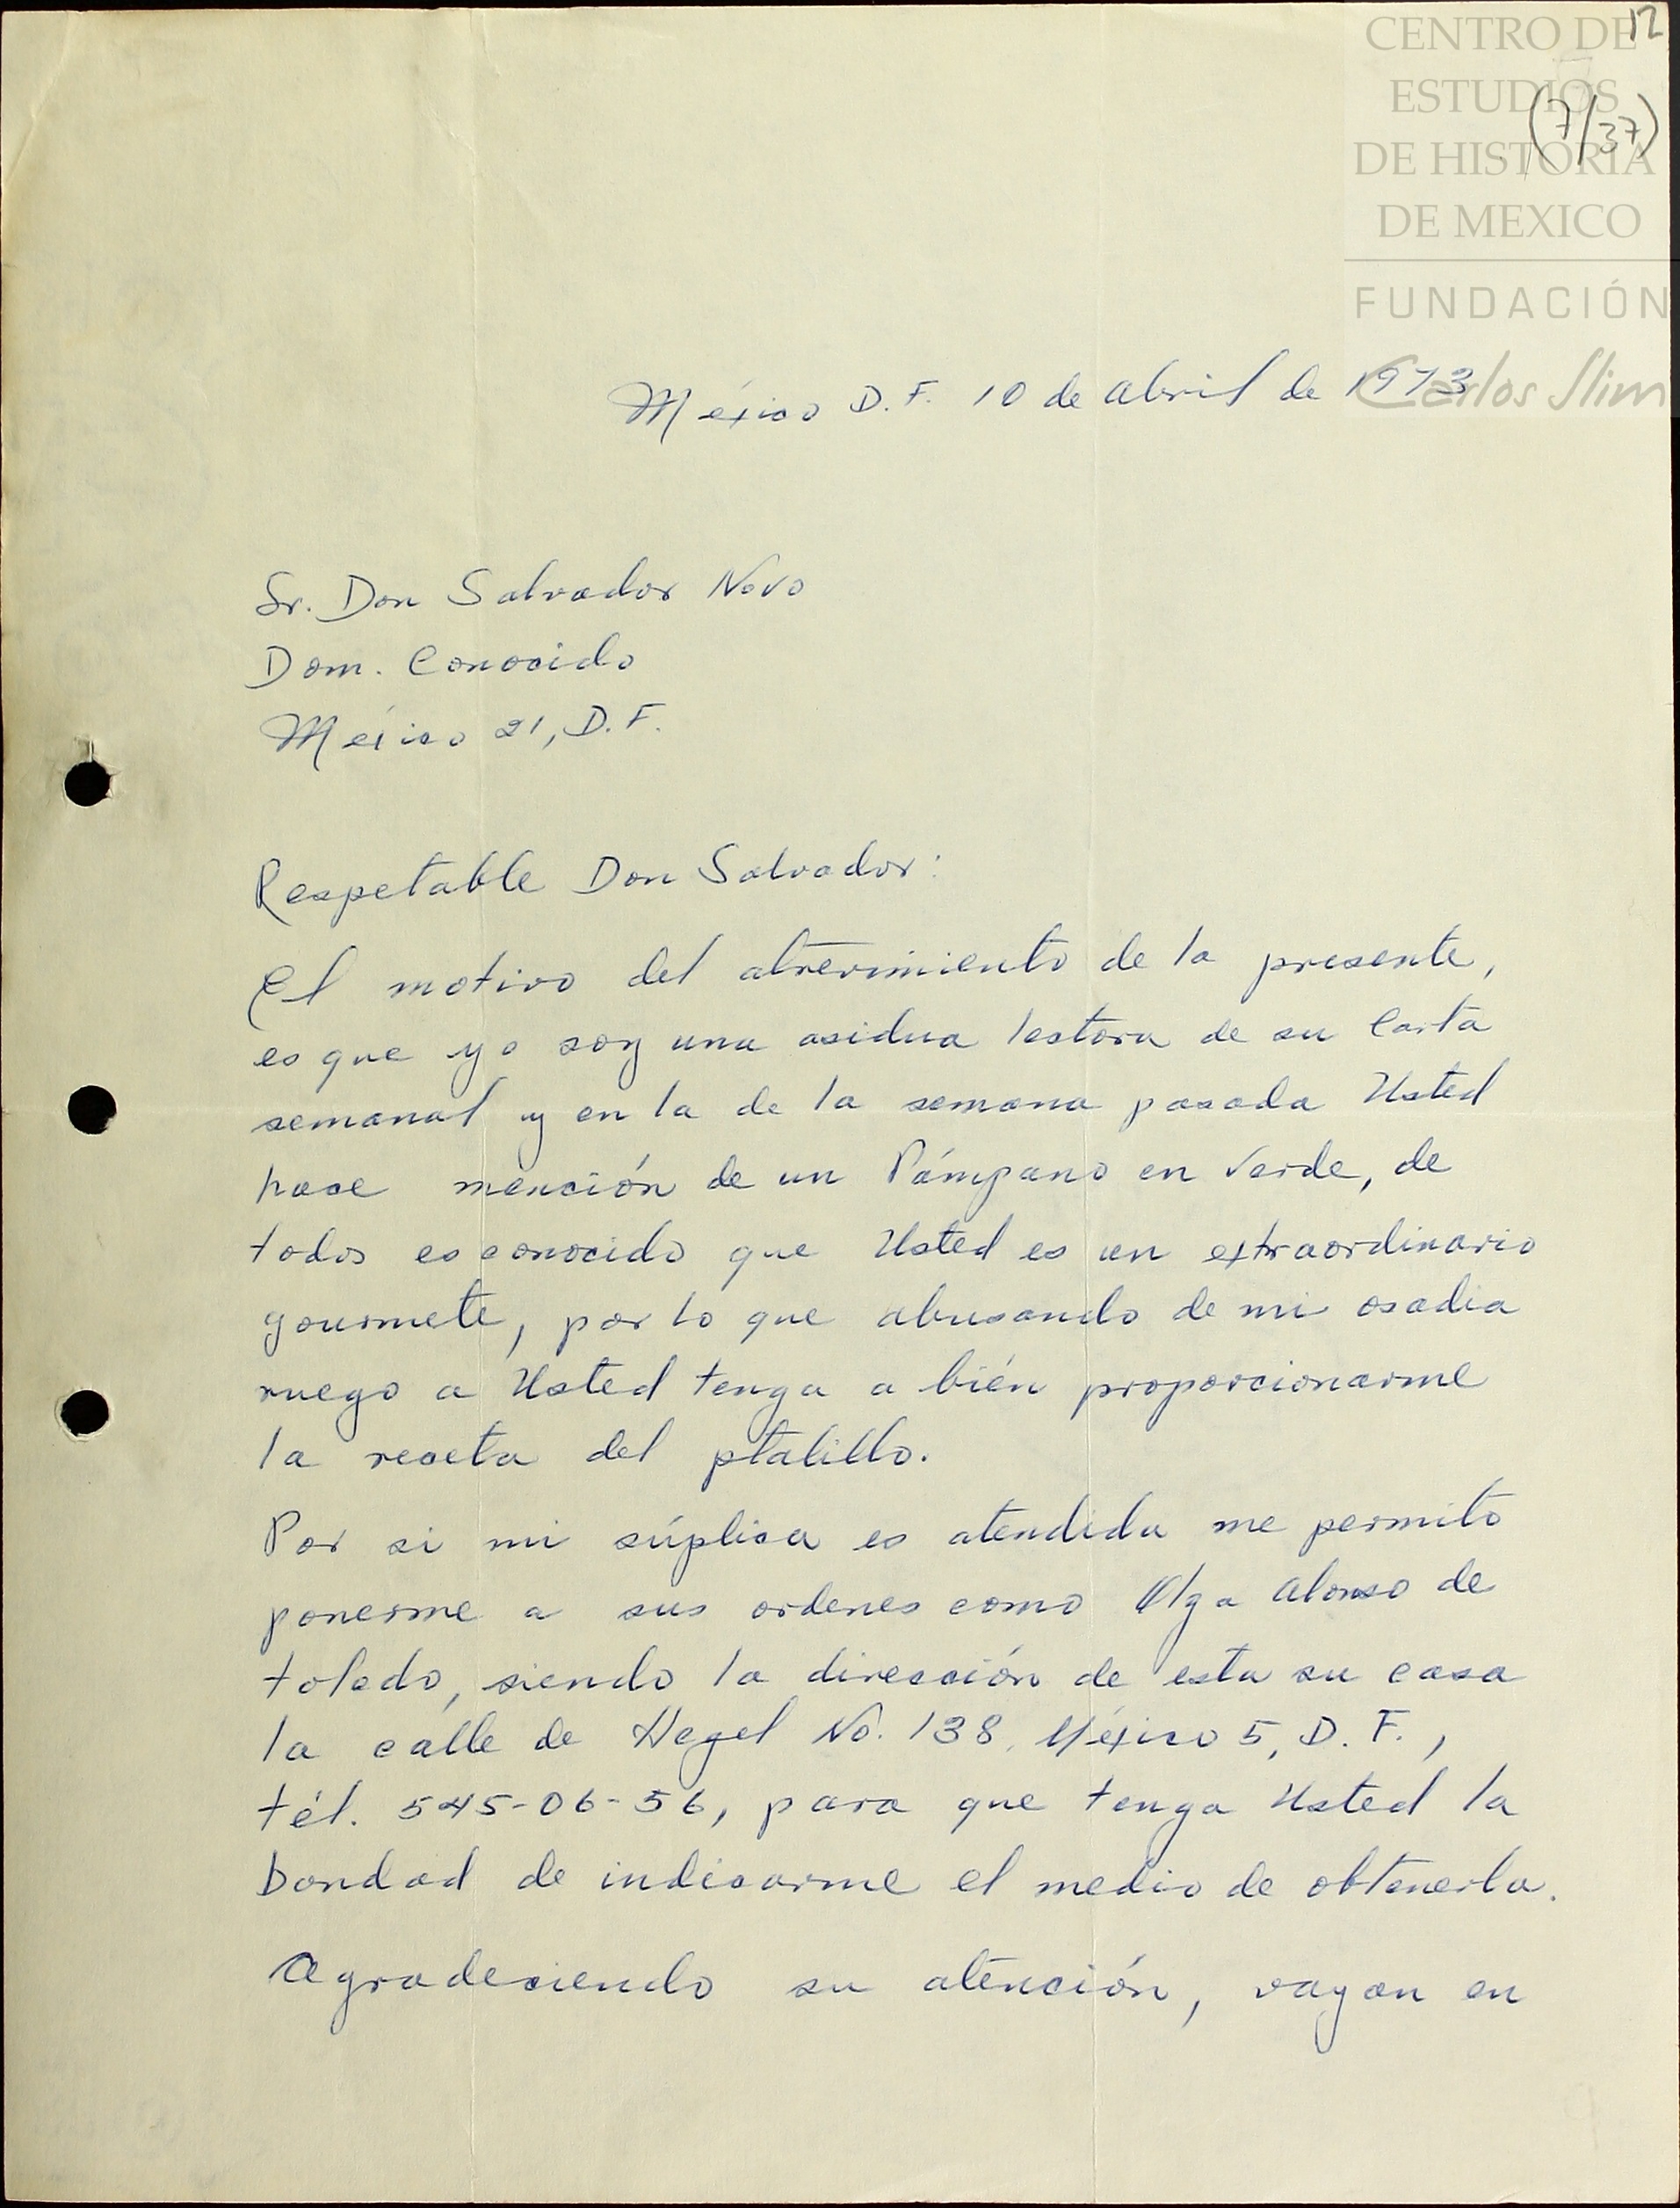 12
CENTRO DE
ESTUDIOS
(7/37)
DE HISTORIA
DE MEXICO
FUNDACIÓN
Carlos Slim
México D.F. 10 de abril de 1973
Sr. Don Salvador Novo
Dom. Conocido
México 21, D.F.
Respetable Don Salvador:
El motivo del atrevimiento de la presente,
es que yo soy una asidua lectora de su Carta
semanal y en la de la semana pasada Usted
hace mención de un Pámpano en Verde, de
todos es conocido que Usted es un extraordinario
gourmete, por lo que abusando de mi osadia
ruego a Usted tenga a bién proporcionarme
la receta del platillo.
Por si mi súplica es atendida me permito
ponerme a sus ordenes como Olga Alonso de
toledo, siendo la dirección de esta su casa
la calle de Hegel No. 138, México 5, D. F.,
tél. 545-06-56, para que tenga Usted la
bondad de indicarme el medio de obtenerla.
Agradeciendo su atención, vayan en